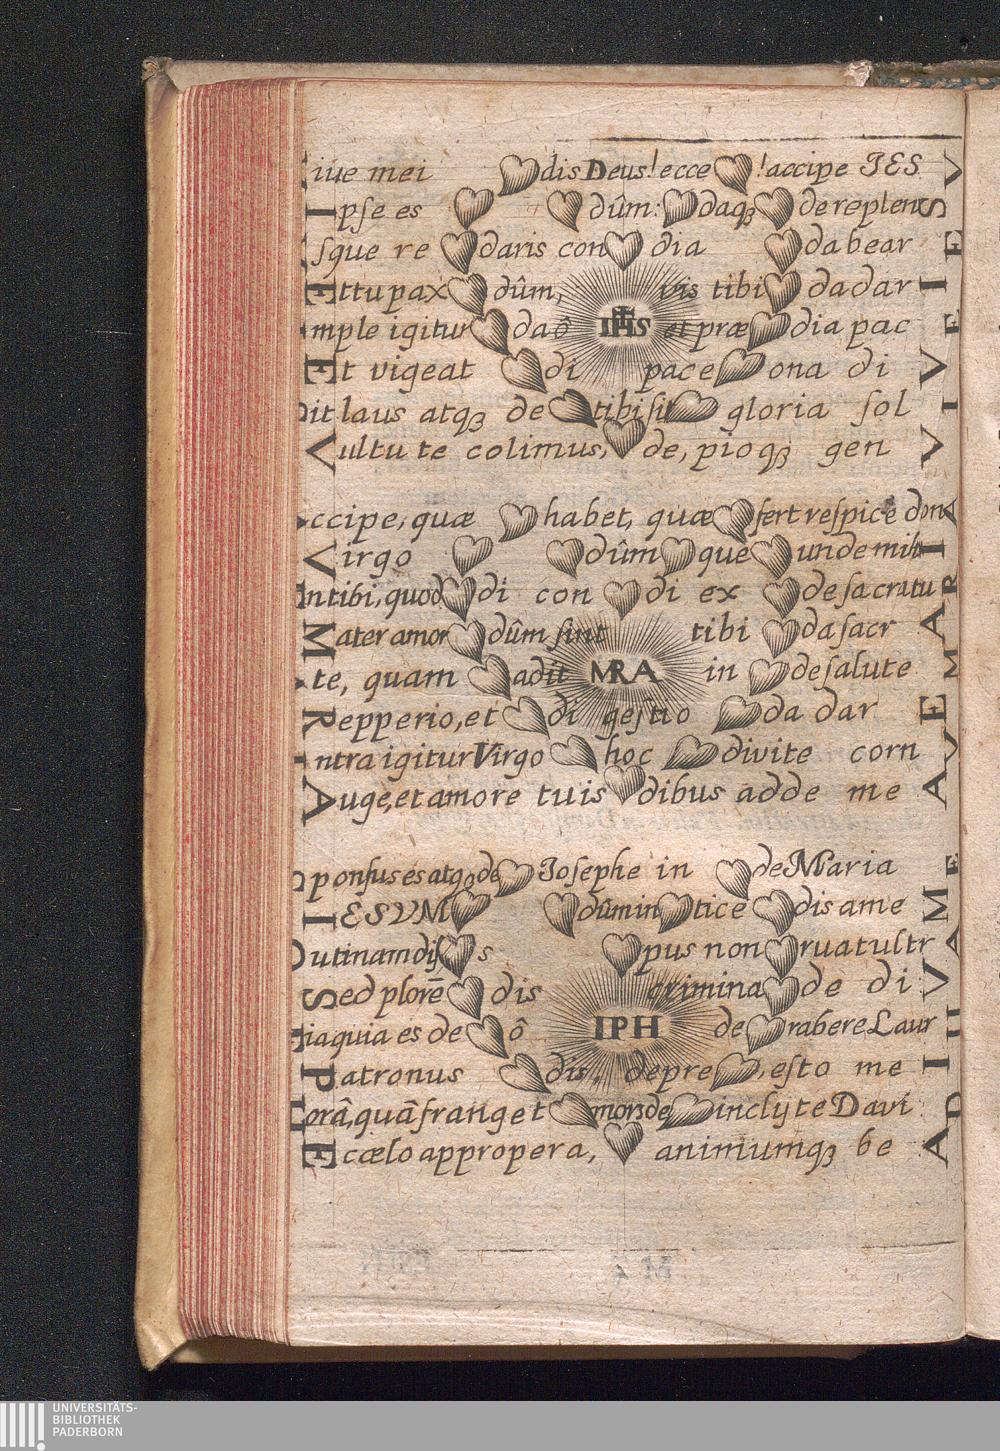 iue mei dis Deus! ecce ! accipe IES V
Ipſe es dûm: daqꝫ de replen S
ſque re daris con dia da bear E
Et tu pax dûm, vis tibi da dar I
mple igitur da ô IHS et præ dia pac E
Et vigeat di pace ona di V
it laus atqꝫ de tibi ſit gloria ſol I
Vultu te colimus, de, pioqꝫ gen V
ccipe, quæ habet, quæ fert reſpice don A
Virgo dûm que unde mih I
n tibi, quod di con di ex de ſacratu R
Mater amor dûm ſint tibi da ſacr A
te, quam adit MRA in de ſalute M
Repperio, et di geſtio da dar E
ntra igitur Virgo hoc divite corn V
Auge, et amore tuis dibus adde me A
ponſus es atqꝫ de Ioſephe in de Maria E
IESVM dûm in tice dis ame M
utinam diſ s pus non ruat ultr A
Sed plorē dis crimina de di V
ia quia es de ô IPH de rabere Laur
Patronus dis, depre, eſto me I
orâ, quâ franget mors de inclyte Davi D
E cœlo appropera, animumqꝫ be A
M 4
UNIVERSITÄTS-
BIBLIOTHEK
PADERBORN